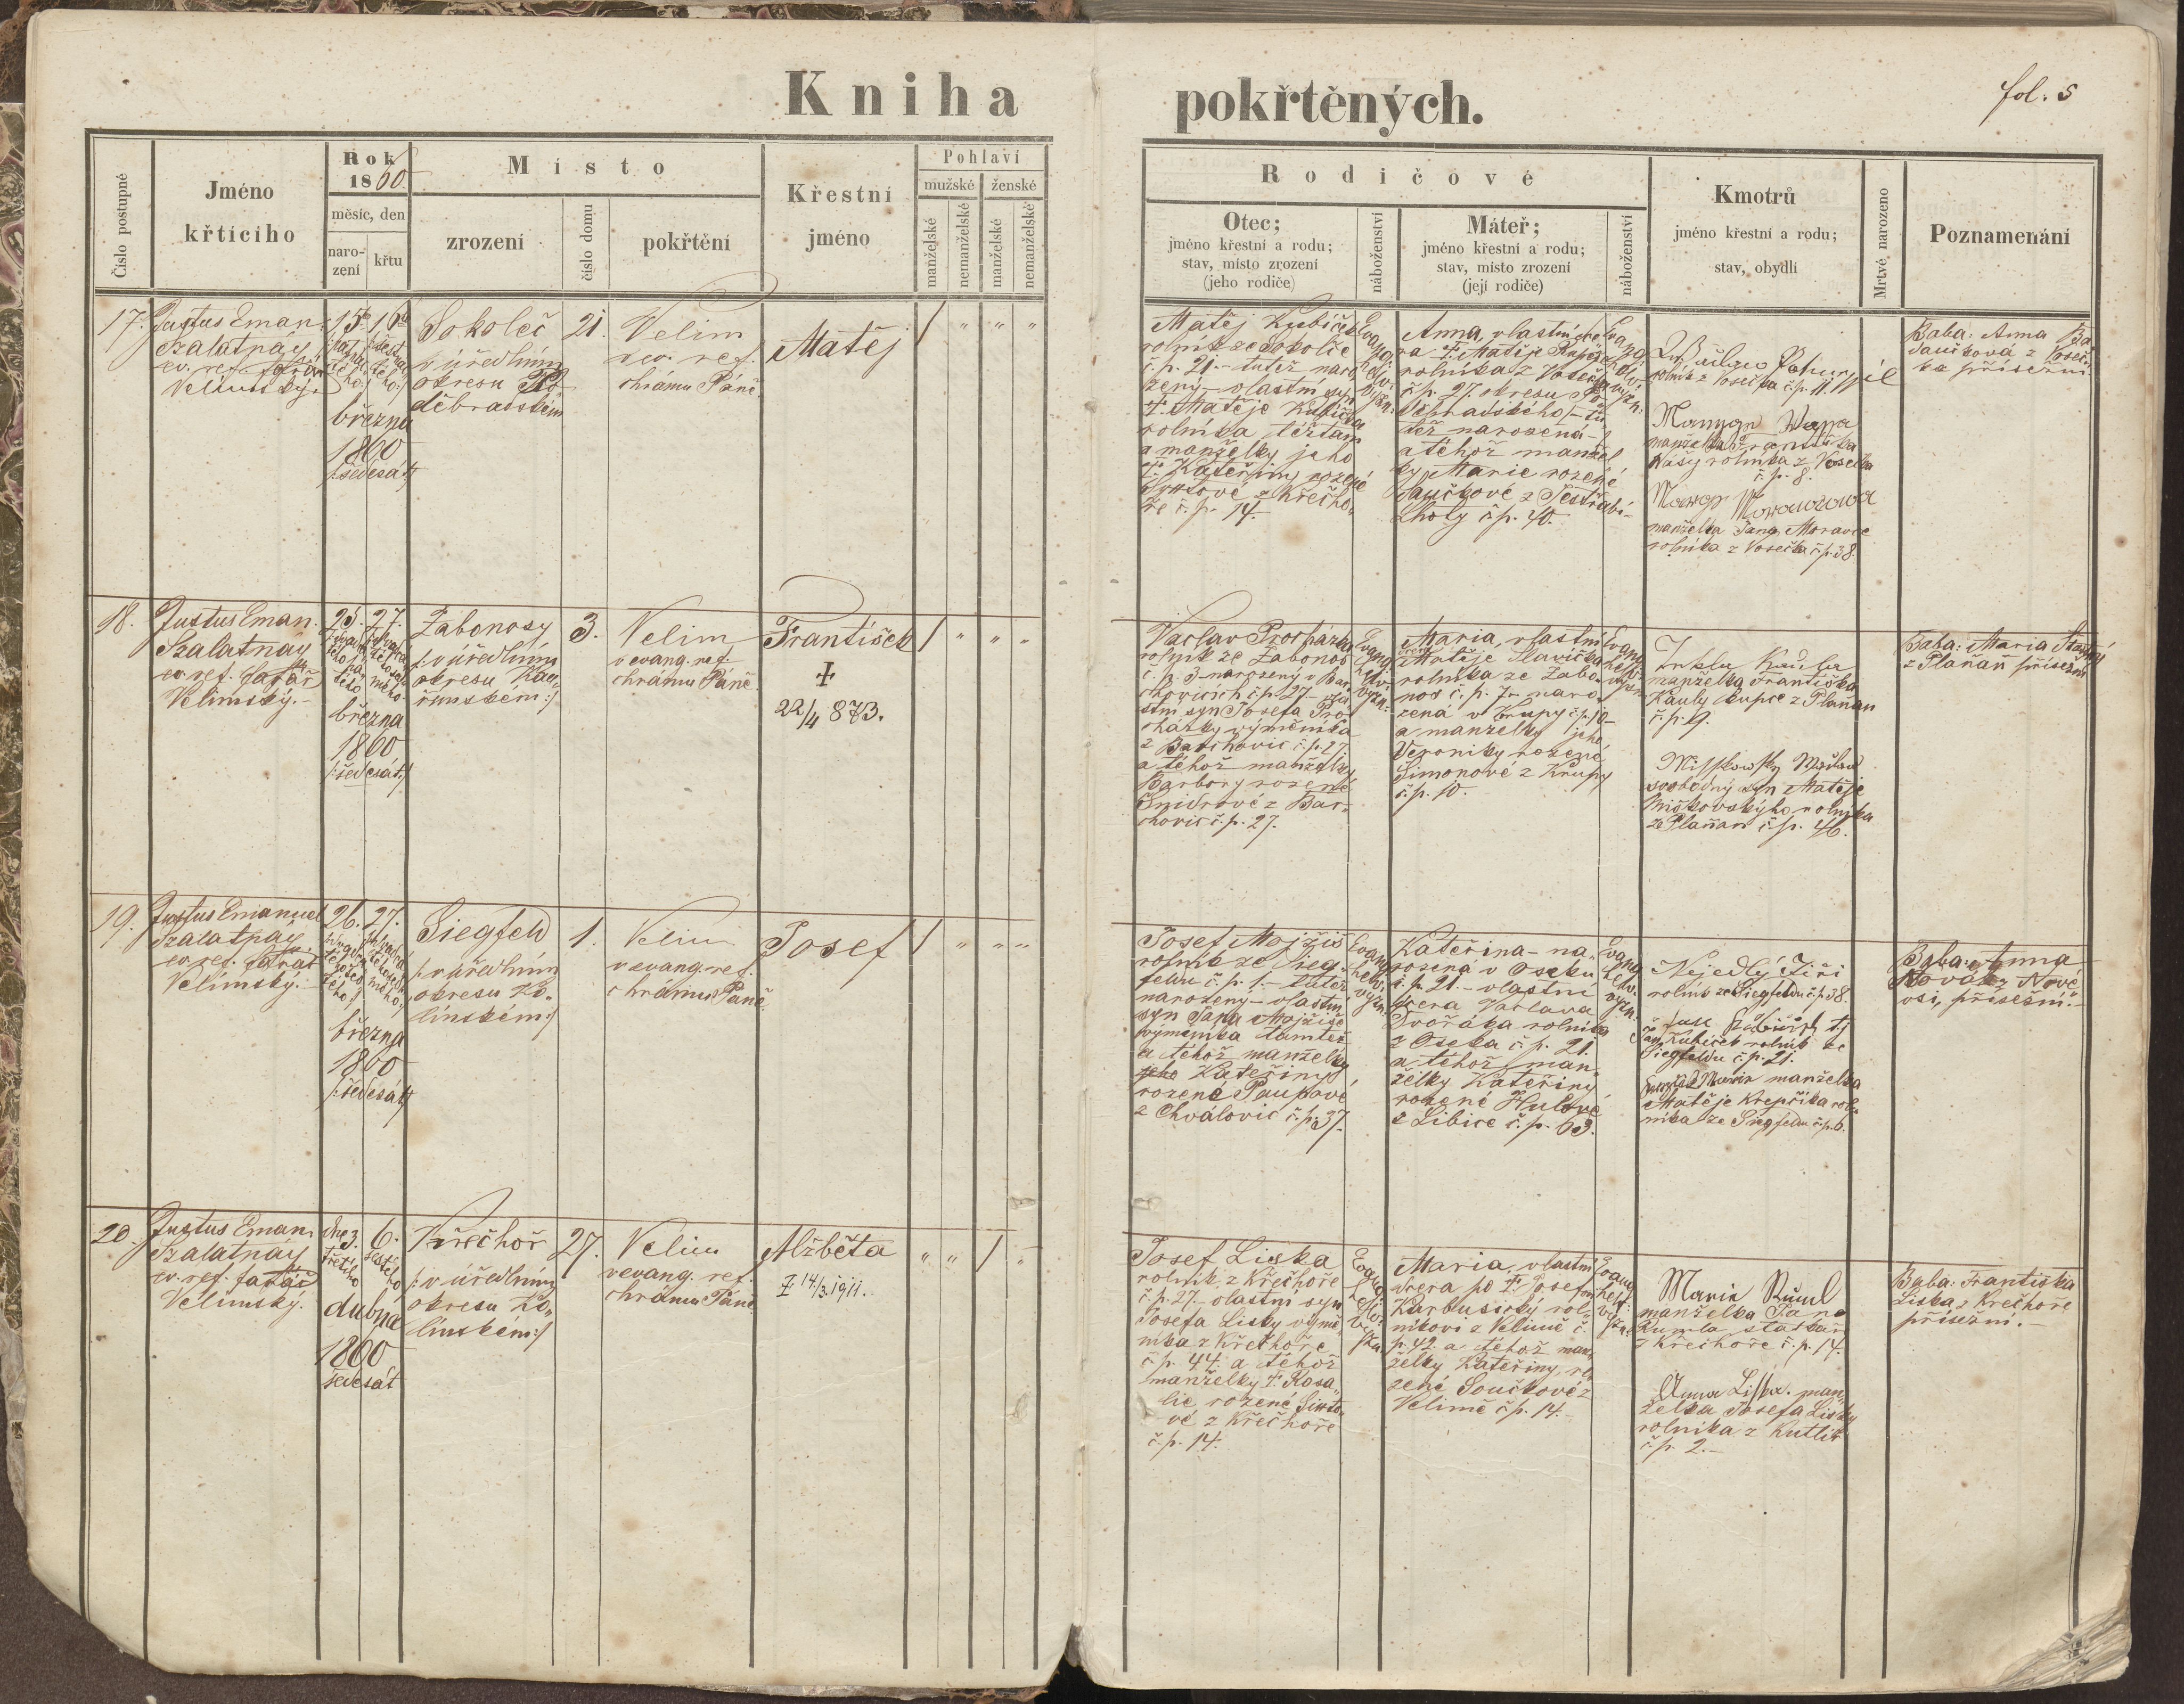 Kniha pokřtěných.
fol. 5
Číslo postupné
Jméno
křtícího
Rok
1860
měsíc, den
naro-
zení
křtu
Místo
zrození
číslo domu
pokřtění
Křestní
jméno
Pohlaví
mužské
ženské
manželské
nemanželské
manželské
nemanželské
Rodičové
Otec;
jméno křestní a rodu;
stav, místo zrození
(jeho rodiče)
náboženství
Máteř;
jméno křestní a rodu;
stav, místo zrození
(její rodiče)
náboženství
Kmotrů
jméno křestní a rodu;
stav, obydlí
Mrtvě narozeno
Poznamenání
17.
Justus Eman.
Szalatnay
ev. ref. farář
Velimský.
15. 16.
března
1860
/:šedesát:/
Sokoleč
/:v úředlním
okresu Po-
děbradském
21.
Velim
v ev. ref.
chrámu Páně.
Matěj
/ " " "
Matěj Kubíček
rolník ze Sokolče
č. p. 21.– tutéž naro
zený – vlastní syn
†. Matěje Kubíčka
rolníka též tam
a manželky jeho
†. Kateřiny rozené
z Křečho-
ře č. p. 14.
Evang.
helv.
vyzn.
Anna, vlastní dce
ra †. Matěje
rolníka z Voseč
č. p. 27. okresu Po-
děbradského – tu
též narozená –
a téhož manžel
ky Marie rozené
Součkové z Jestřabí-
Lhoty č p. 40.
Evang.
helv.
vyzn.
rolník z Vosečka č. p. 11.
manželka Františka
Váši rolníka z Vosečka
č. p. 8.
manželka Jana Moravce
rolníka z Vosečka č. p. 38.
Baba: Anna
Součková z Voseč-
ka přísežní.
18.
Justus Eman.
Szalatnay
ev. ref. farář
Velimský.–
25. 27.
března
1860
/:šedesát:/
Žabonosy
/:v úředlním
okresu Kou-
řimském:/
3.
Velim
v evang. ref.
chrámu Páně.
František
†
22/4 873.
/ " " "
Václav Procházka
rolník ze Žabonos
č. p. 3– narozený v Bar-
chovicích č. p. 27– vla-
stní syn Josefa Pro-
cházky výměníka
z Barchovic č. p. 27.
a téhož manželky
Barbory rozené
Šnidrové z Bar-
chovic č. p. 27.
Evang.
helv.
vyzn.
Maria, vlastní
dcera
Matěje Slavíčka
rolníka ze Žabo-
nos č. p. 7– naro-
zená v Krupy č. p. 10–
a manželky jeho
Veroniky rozené
Šimonové z Krupy
č. p. 10.
Evang.
helv.
vyzn.
manželka Františka
Kauly kupce z Plaňan
č. p. 9.
svobodný syn Matěje
Miškovskýho rolníka
ze Plaňan č. p. 46.
Baba: Maria Šťastný
z Plaňan přísežní
19.
Justus Emanuel
Szalatnay
ev. ref. farář
Velimský.–
26. 27.
března
1860
/:šedesát:/
Siegfeld
/:v úředlním
okresu Ko-
línském:/
1.
Velim
v evang. ref.
chrámu Páně
Josef
/ " " "
Josef Mojžíš
rolník ze Sieg-
feldu č. p. 1.– tutéž
narozený – vlastní
syn Jana Mojžíše
výměníka tamtéž
a téhož manželky
jeho Kateřiny
rozené Paupové
z Chválovic č. p. 37.
Evang.
helv.
vyzn.
Kateřina – na-
rozená v Oseku
č. p. 21.– vlastní
dcera Václava
Dvořáka rolníka
z Oseka č. p. 21.
a téhož man-
želky Kateřiny
rozené Hulové
z Libice č. p. 63.
Evang.
helv.
vyzn.
Nejedlý Jiří
rolník ze Siegfeldu č. p. 38.
Jan Kubíček rolník ze
Siegfeldu č. p. 21.
Maria manželka
Matěje Krepčíka rol-
níka ze Siegfeldu č. p. 6.
Baba: Anna
Novák z Nové
vsi, přísežní.–
20.
Justus Eman.
Szalatnay
ev. ref. farář
Velimský.
dne 3. 6.
třetího šestého
dubna
1860
šedesát
Křečhoř
/:v úředlním
okresu Ko-
línském:/
27.
Velim
v evang. ref.
chrámu Páně
Alžběta
† 14/3. 1911.
" " / "
Josef Liska
rolník z Křečhoře
č. p. 27.– vlastní syn
Josefa Lisky výmě-
níka z Křečhoře
č. p. 44. a téhož
manželky †. Rosa-
lie rozené
vé z Křečhoře
č. p. 14.
Maria, vlastní
dcera po †. Josefu
Karbusický rol-
níkovi z Velimě č.
p. 42. a téhož man-
želky Kateřiny ro-
zené Součkové z
Velimě č. p. 14.–
Maria Ruml
manželka Jana
Rumla statkář
z Křečhoře č. p. 14.
Anna Liska. man-
želka Josefa Lisky
rolníka z Kutlíř
č. p. 2.–
Baba: Františka
Liska z Křečhoře
přísežní.–